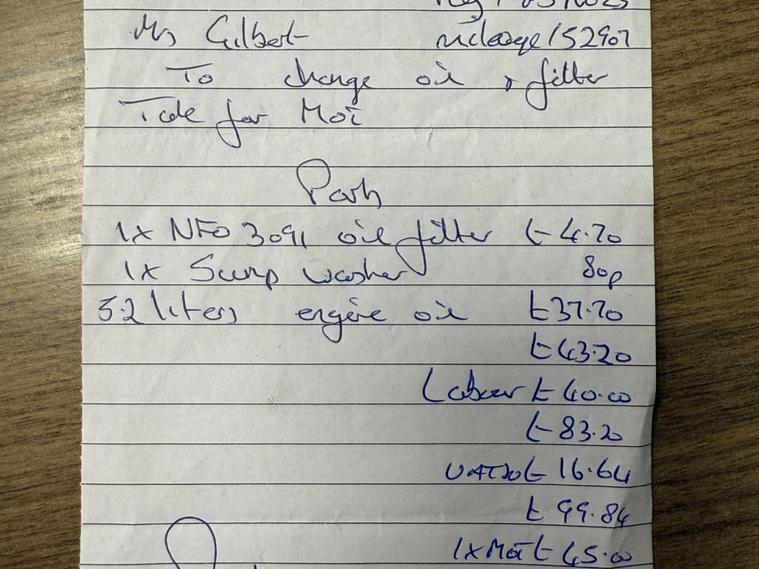 Ms Gilbert mileage 152907
To change oil & filter
Take for MOT
Parts
1x NFO 3091 oil filter £4.70
1x Sump washer 80p
5.2 liters engine oil £37.70
£43.20
Labour £40.00
£83.20
VAT 20 £16.64
£99.84
1x MOT £45.00